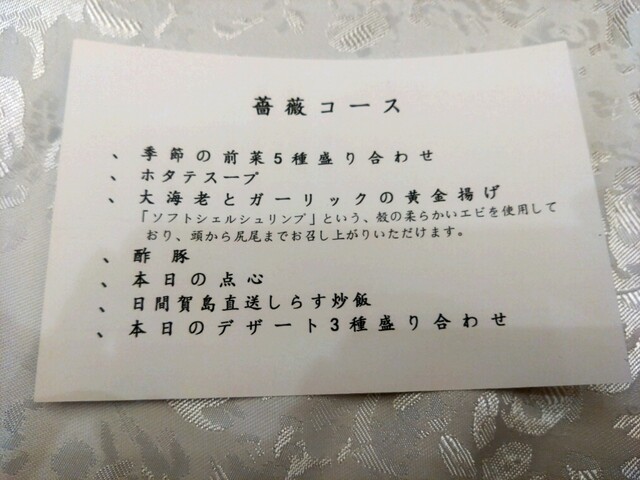 薔薇コース
、季節の前菜5種盛り合わせ
、ホタテスープ
、大海老とガーリックの黄金揚げ
「ソフトシェルシュリンプ」という、殻の柔らかいエビを使用して
おり、頭から尻尾までお召し上がりいただけます。
、酢 豚
、本日の点心
、日間賀島直送しらす炒飯
、本日のデザート3種盛り合わせ